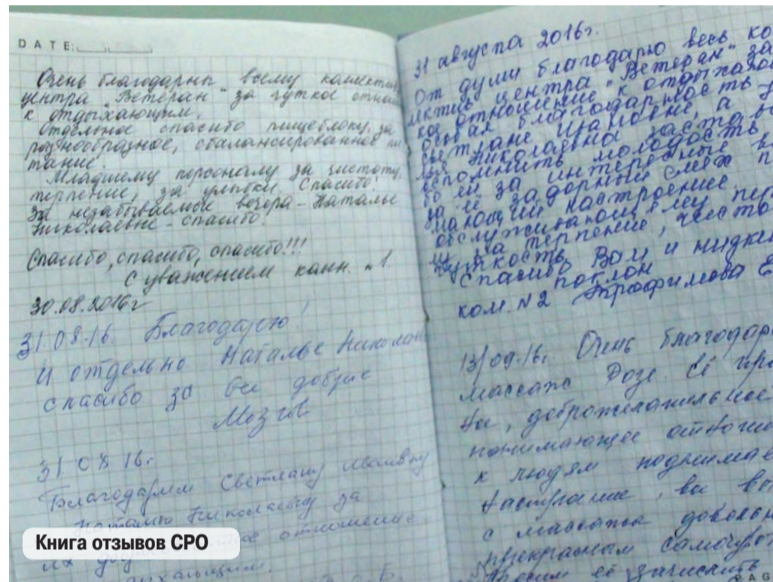 DATE:
Очень благодарны всему коллективу
центра "Ветеран" за чуткое
к отдыхающим.
Отдельное спасибо пищеблоку за
разнообразное, сбалансированное пи-
тание.
Младшему персоналу за чистоту,
терпение, за улыбки. Спасибо!
За незабываемые вечера - Наталье
Николаевне - спасибо!
Спасибо, спасибо, спасибо!!!
С уважением комн. №1.
30.08.2016г
31.08.16. Благодарю!
И отдельно Наталье
спасибо за все доброе
31 08 16г.
Благодарим Светлану Ивановну
Наталью Николаевну за
отношение
Книга отзывов СРО
31 августа 2016г.
От души благодарю весь кол
лектив центра "Ветеран" за
кое отношение к отдыхаю
особая благодарность
Светлане Ивановне а
Николаевна заставила
вспомнить молодость
бо ей за интересные
за её задорный смех
настроение
обслуживающему пер
за терпение, чисто
чуткость
Спасибо Вам и низкий
поклон
ком. №2 Трофимова Е
13/09-16г. Очень благодар
массаж Розе. Её
доброжелательное
понимающее отноше
к людям поднимае
настроение
с массажа
прекрасным самочув